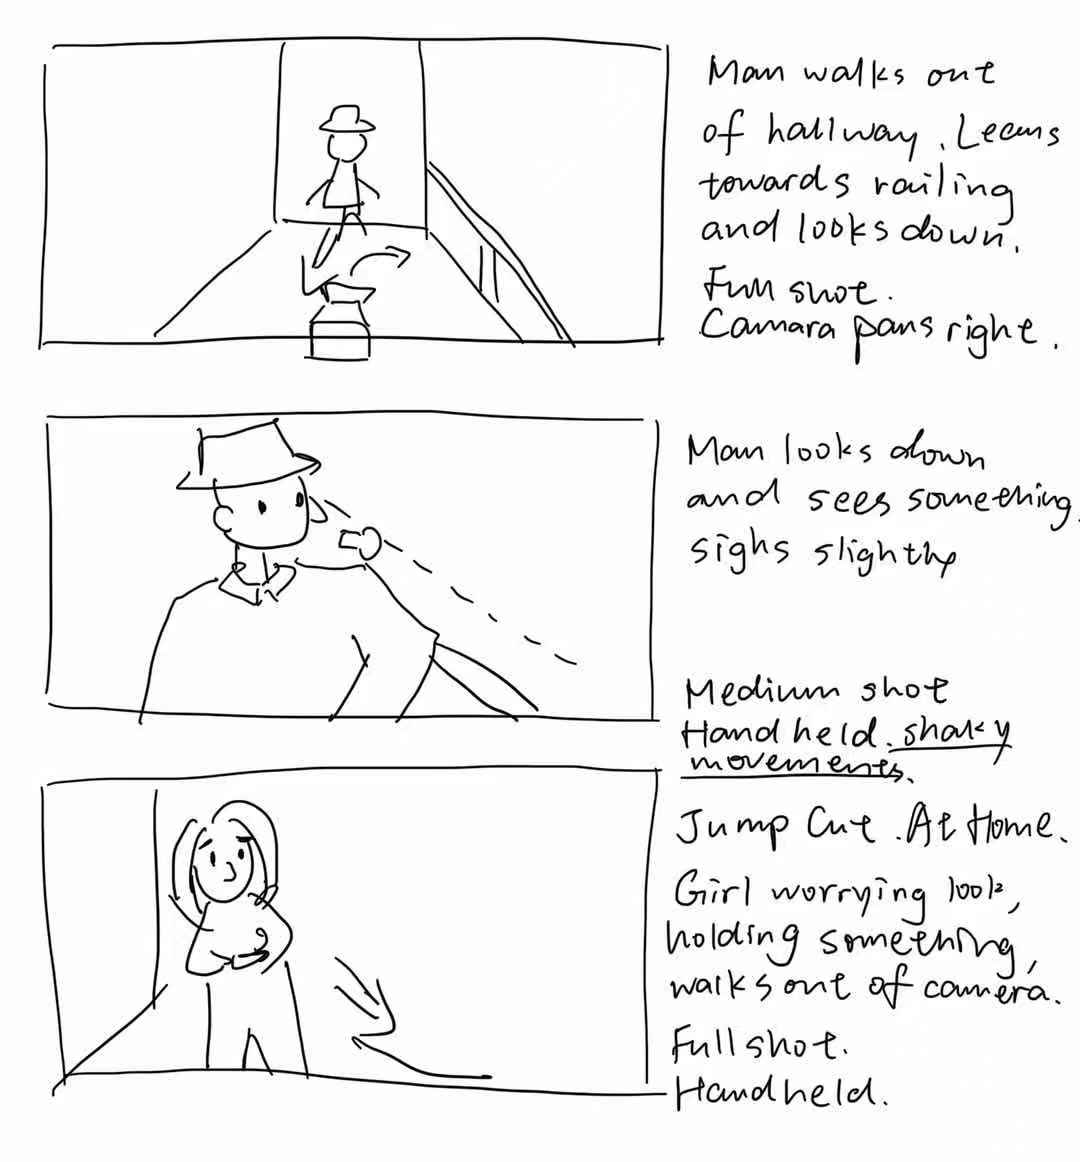 Man walks out
of hallway. Leans
towards railing
and looks down.
Full shot.
Camara pans right.
Man looks down
and sees something.
sighs slightly
Medium shot
Handheld. shaky
movements.
Jump Cut. At Home.
Girl worrying look,
holding something,
walks out of camera.
Full shot.
Handheld.